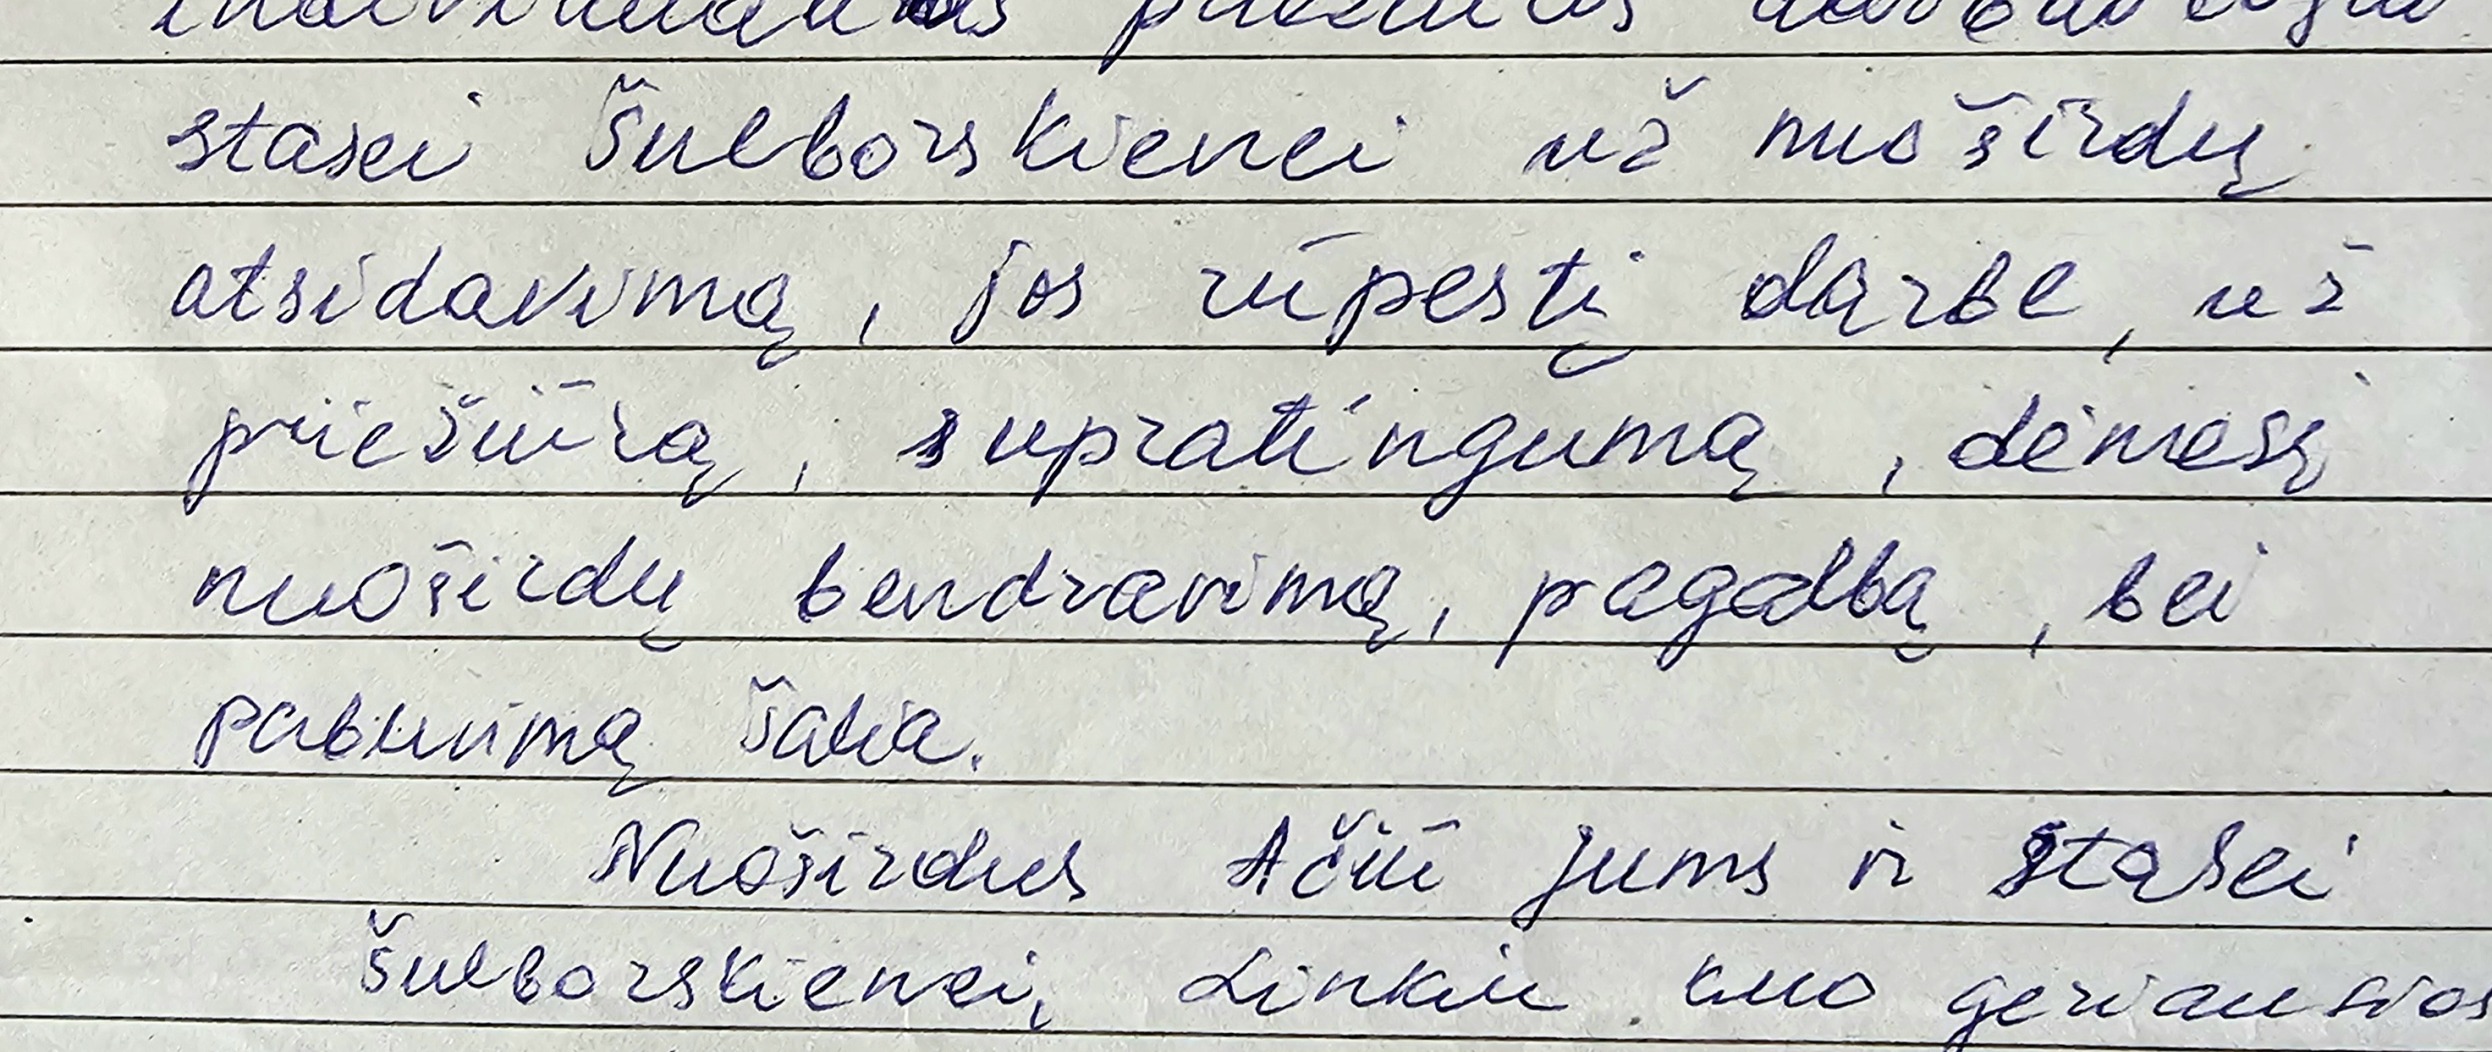 individualios priežiūros darbuotojai
stasei Šulborskienei už nuoširdų
atsidavimą, jos rūpestį darbe, už
priežiūrą, supratingumą, dėmesį
nuoširdų bendravimą, pagalbą, bei
pabuvimą šalia.
Nuoširdus Ačiū jums ir Stasei
Šulborskienei, Linkiu kuo geriausios